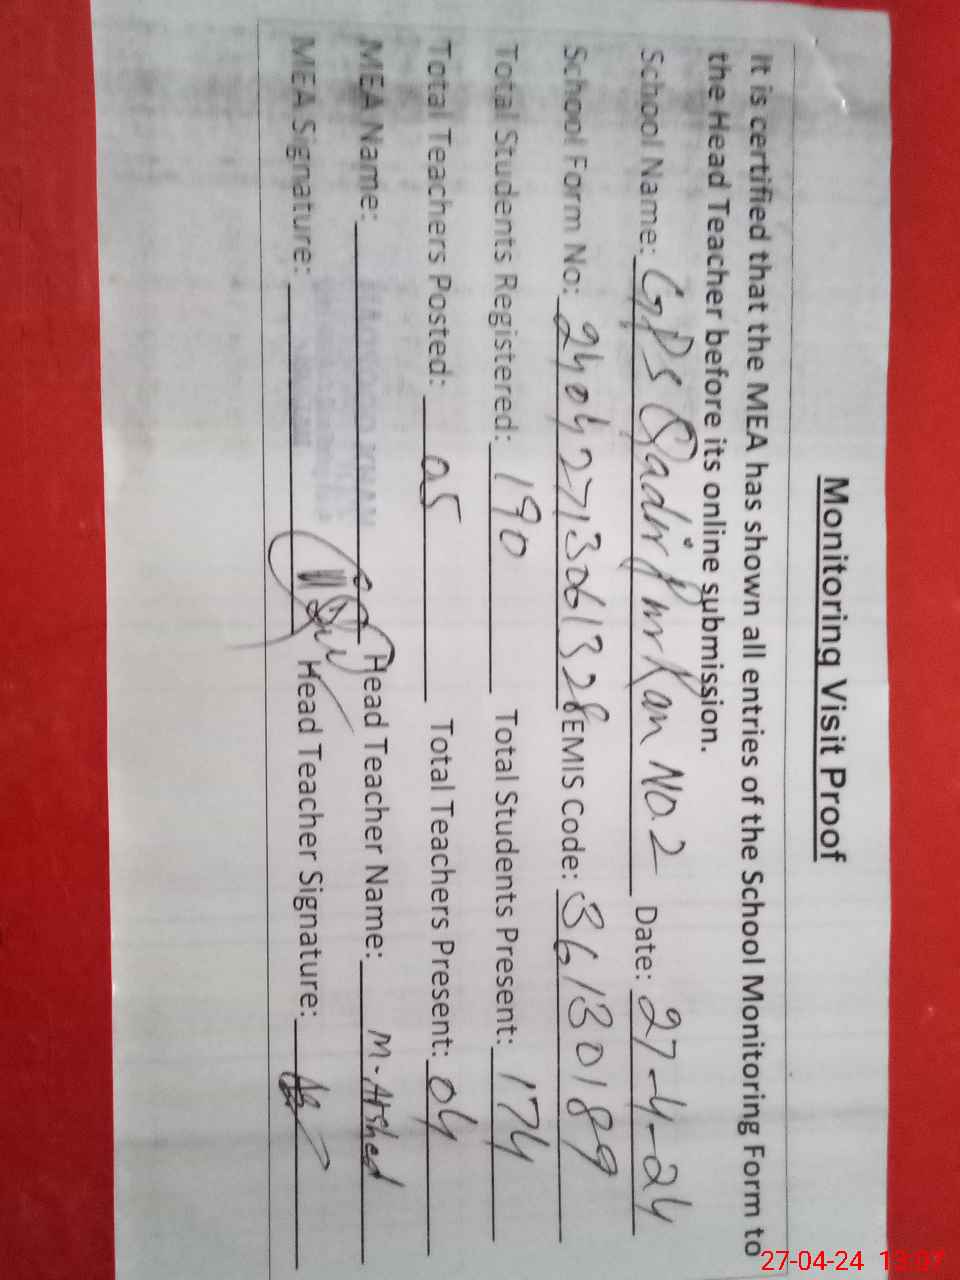 Monitoring Visit Proof
It is certified that the MEA has shown all entries of the School Monitoring Form to
the Head Teacher before its online submission.
School Name: GPS Qadir Pur Ran No.2 Date: 27-4-24
School Form No: 24042713061328 EMIS Code: 36130189
Total Students Registered: 190 Total Students Present: 174
Total Teachers Posted: 05 Total Teachers Present: 04
MEA Name: Head Teacher Name: M-Arshed
MEA Signature: Head Teacher Signature:
27-04-24 13:07